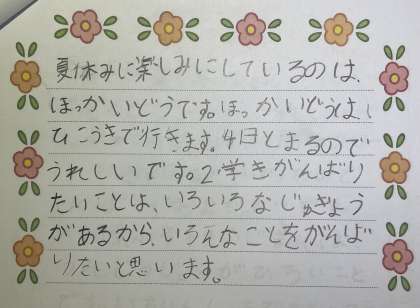 夏休みに楽しみにしているのは、
ほっかいどうです。ほっかいどうは、
ひこうきで行きます。4日とまるので
うれしいです。2学きがんばり
たいことは、いろいろなじゅぎょう
があるから、いろんなことをがんば
りたいと思います。